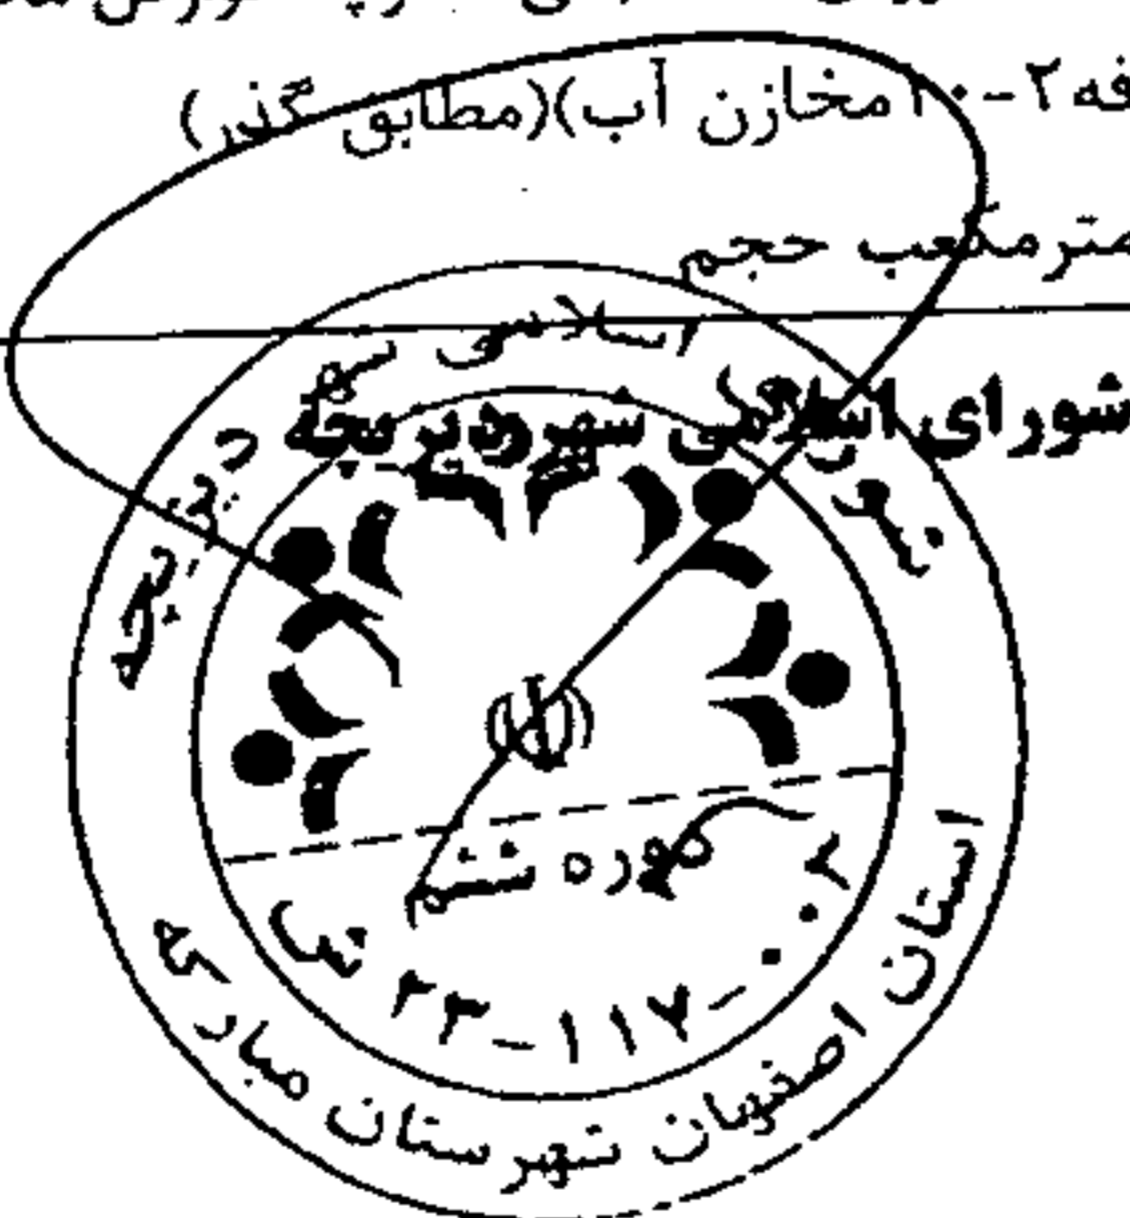 فه ۲-۱۰ مخازن آب)(مطابق گذر)
مترمکعب حجم
شورای اسلامی شهر دیزیچه
شورای اسلامی شهر دیزیچه
دوره ششم
۲۳-۱۱۷-۰۰۲ ش
استان اصفهان شهرستان مبارکه